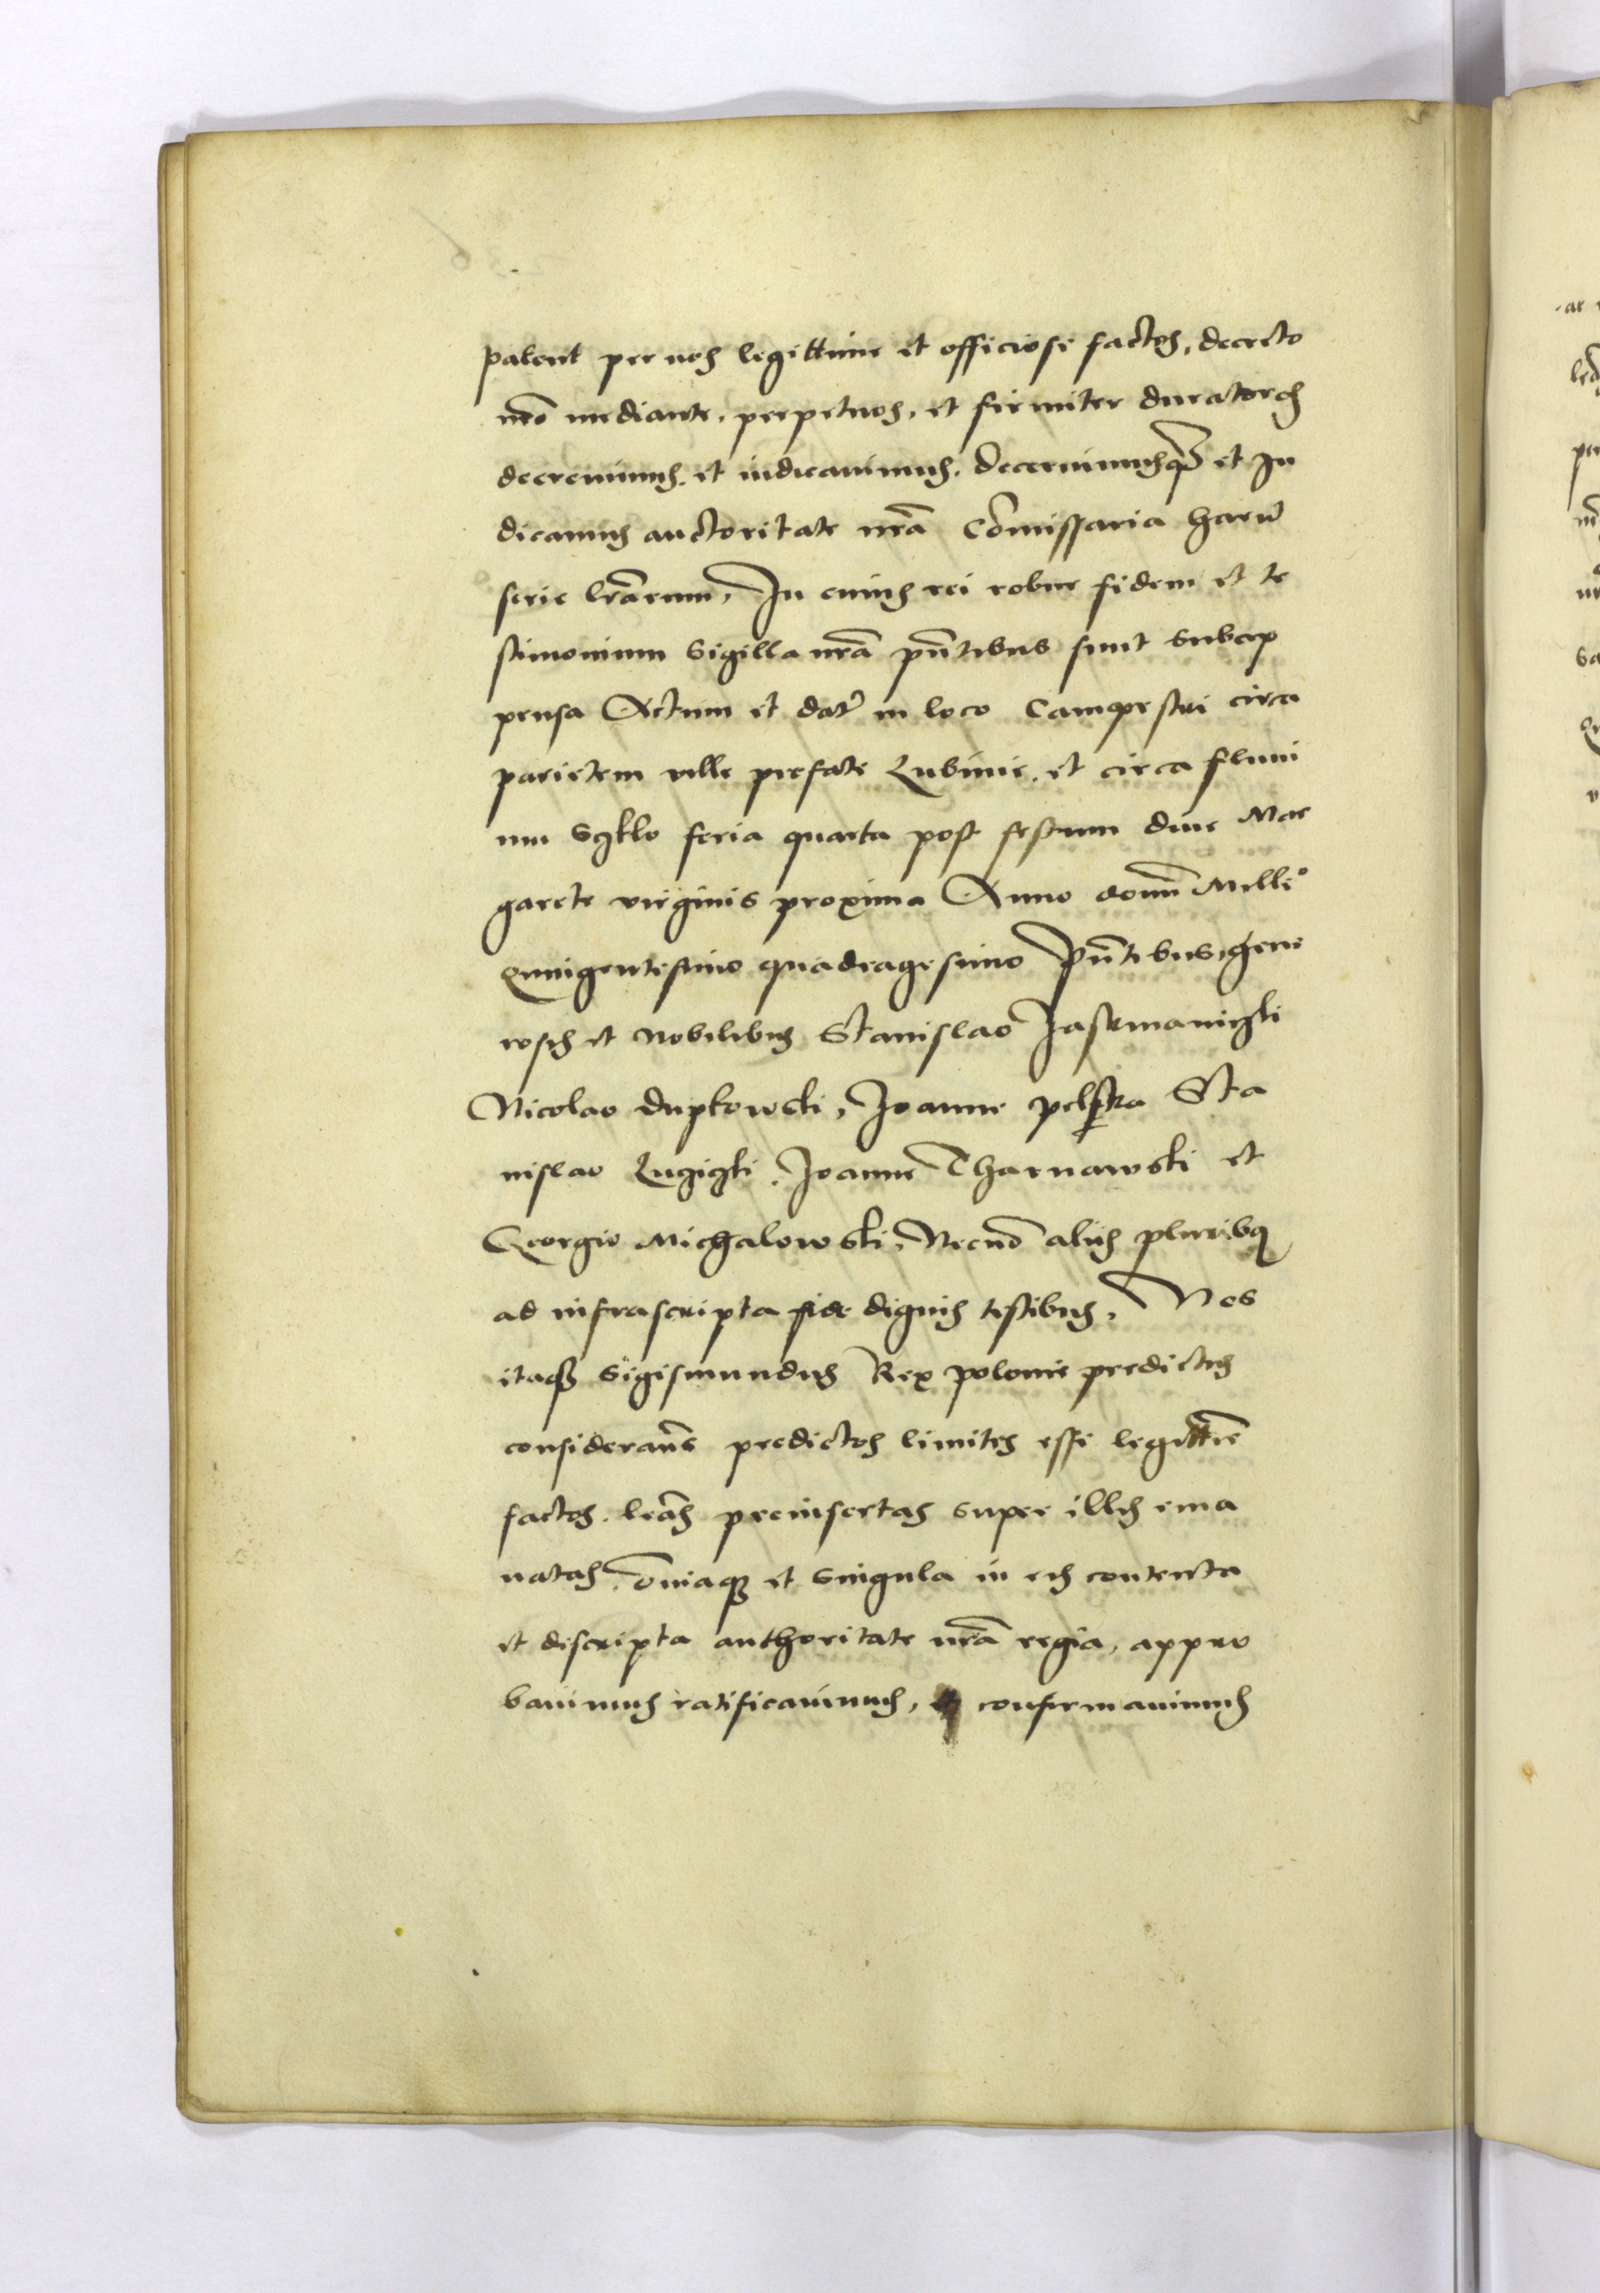 patent per nos legittime et officiose factos, decreto
nrō mediante, perpetuos, et firmiter duraturos
decrevimus et iudicavimus. Decernimusq; et Iu
dicamus auctoritate nrā Cōmissaria harū
serie lrārum, In cuius rei robur fidem et te
stimonium Sigilla nrā pn̄tibus sunt subap
pensa Actum et datū in loco Campestri circa
parietem ville prefate Lubinie, et circa fluui
um Sczklo feria quarta post festum dive Mar
garete virginis proxima Anno domī Millō
Quingentesimo quadragesimo Pn̄tibus gene
rosis et Nobilibus Stanislao
Nicolao Dupkowski, Joanne Sta
nislao Joanne Tharnawski et
Georgio Michalowski, Necnō aliis pluribq
ad infrascripta fide dignis testibus, Nos
itaq; Sigismundus Rex polonie predictus
considerans predictos limites esse legittīe
factos, lrās preinsertas super illis ema
natas, ōniaq; et singula in eis contenta
et discripta authoritate nrā regia, appro
bavimus ratificavimus, confirmavimus